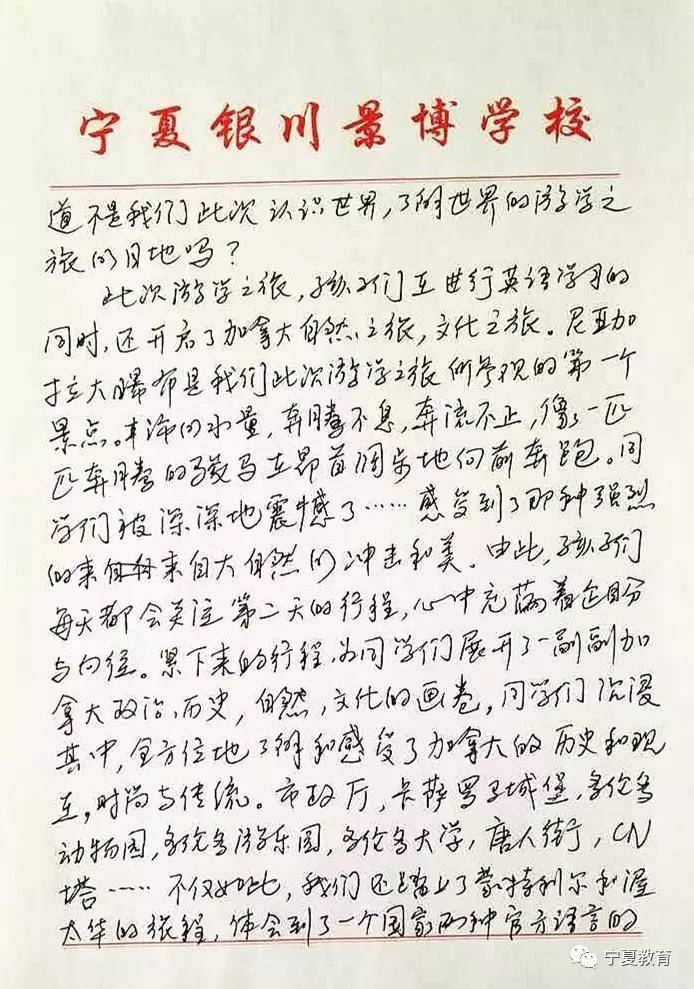 宁夏银川景博学校
道不是我们此次认识世界,了解世界的游学之
旅的目地吗?
此次游学之旅,孩子们在进行英语学习的
同时,还开启了加拿大自然之旅,文化之旅。尼亚加
拉大瀑布是我们此次游学之旅所参观的第一个
景点。丰沛的水量,奔腾不息,奔流不止,像一匹
匹奔腾的骏马在昂首阔步地向前奔跑。同
学们被深深地震憾了……感受到了那种强烈
的来自来自大自然的冲击和美。由此,孩子们
每天都会关注第二天的行程,心中充满着企盼
与向往。紧下来的行程,为同学们展开了一副副加
拿大政治、历史,自然,文化的画卷。同学们沉浸
其中,全方位地了解和感受了加拿大的历史和现
在,时尚与传流。市政厅,卡萨罗玛城堡,多伦多
动物园,多伦多游乐园,多伦多大学,唐人街,CN
塔……不仅如此,我们还踏上了蒙特利尔和渥
太华的旅程,体会到了一个国家两种官方语言的
宁夏教育